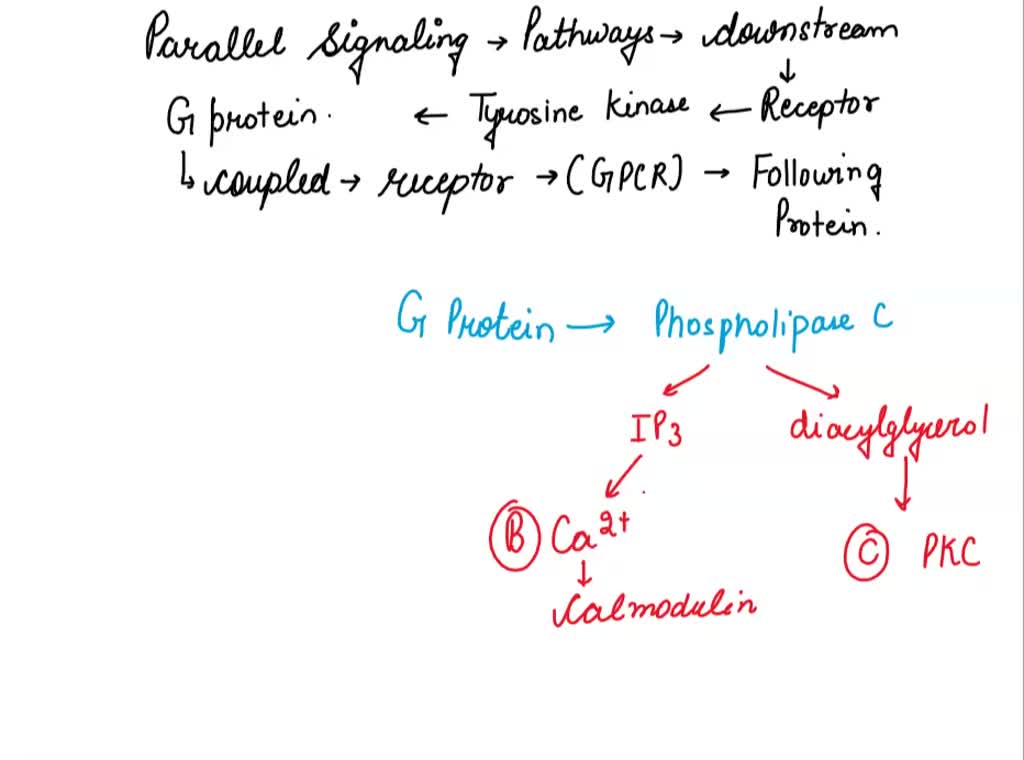 Parallel Signaling → Pathways → downstream
↓
G protein. ← Tyrosine kinase ← Receptor
↳ coupled → receptor → (GPCR) → Following
Protein.
G Protein → Phospholipase C
IP3 diacylglycerol
B Ca2+ C PKC
↓
Calmodulin